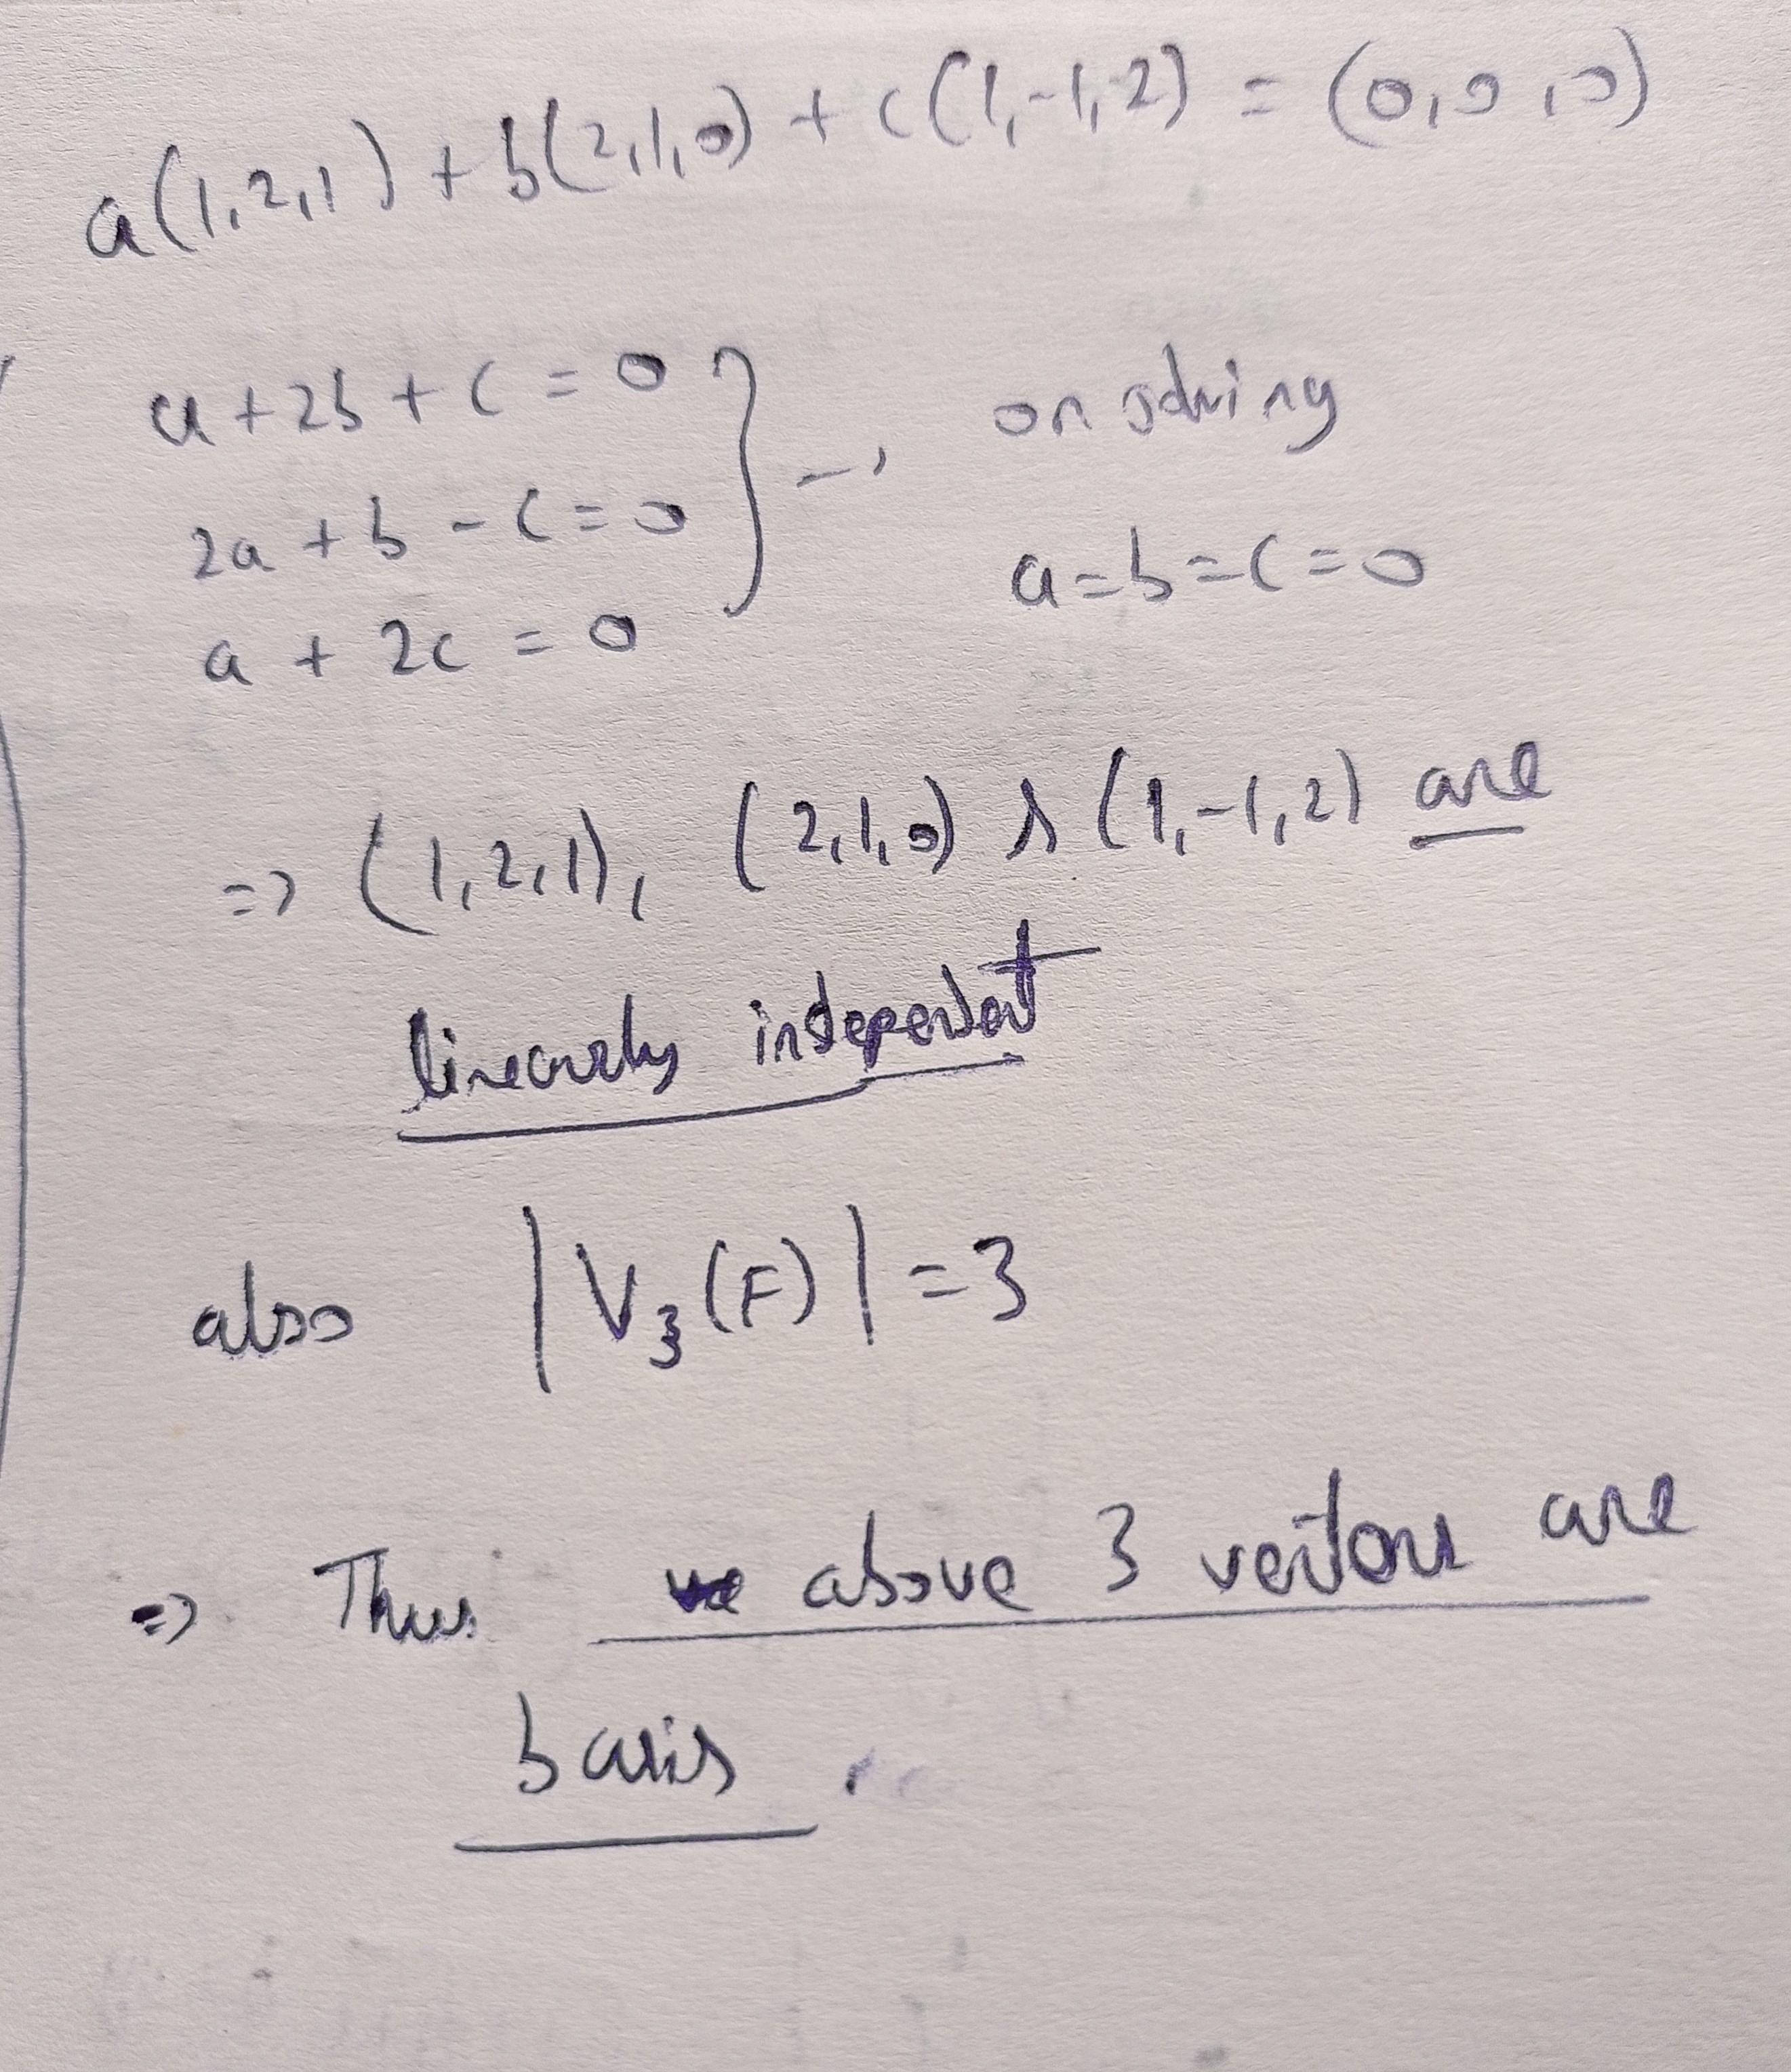 a(1,2,1) + b(2,1,0) + c(1,-1,2) = (0,0,0)
a + 2b + c = 0
2a + b - c = 0
a + 2c = 0
on solving
a = b = c = 0
=> (1,2,1), (2,1,0) & (1,-1,2) are
linearly independent
also |V₃(F)| = 3
=> Thus above 3 vectors are
basis.